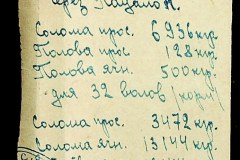 через
Солома прос. 6936 кгр.
Полова прос. 128 кгр.
Полова ячн. 500 кгр.
для 32 волов (корм
Солома прос. 3472 кгр.
Солома ячн. 13144 кгр.